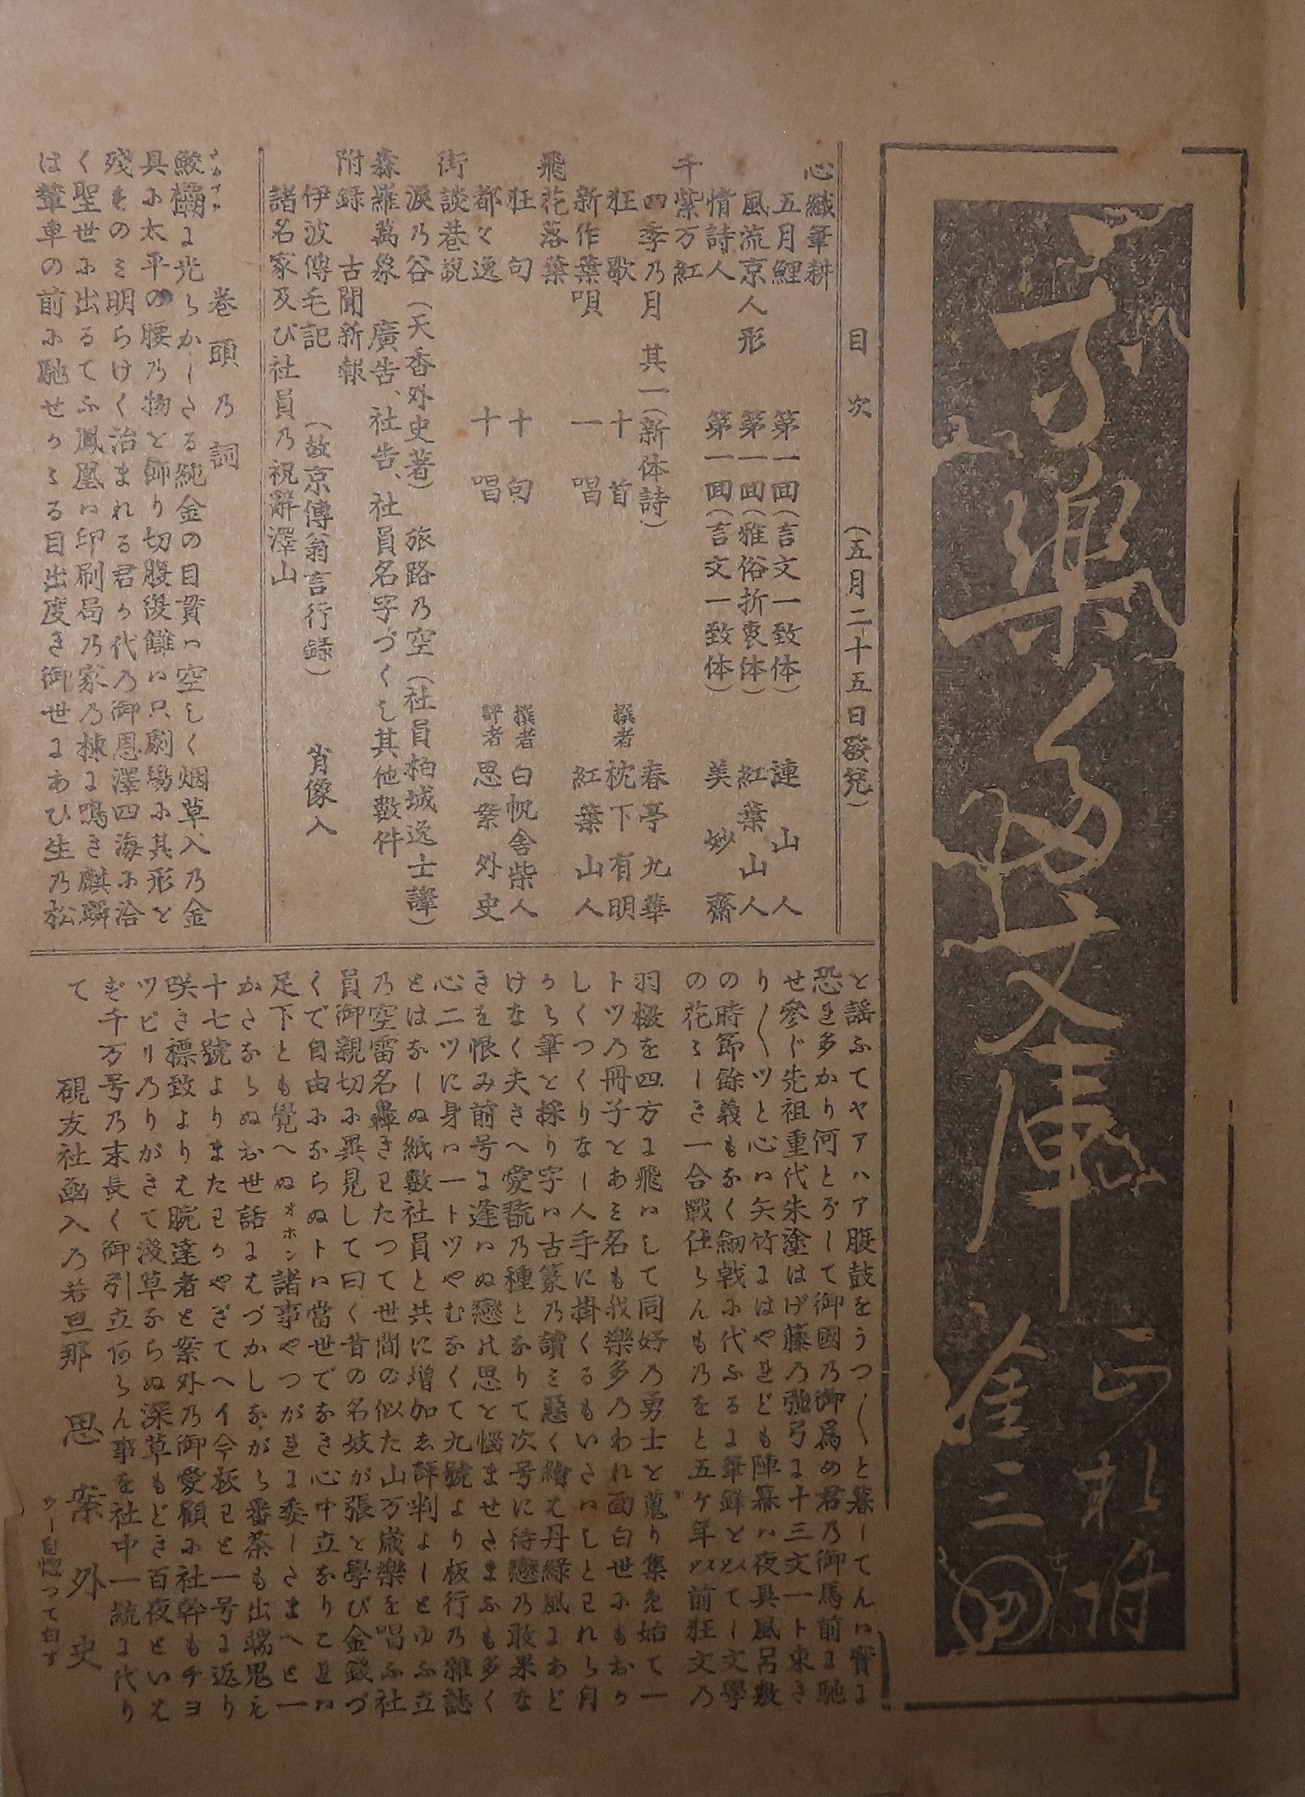 我楽多文庫
金三
目次 (五月二十五日發兌)
心織筆耕
五月鯉 第一回(言文一致体) 漣山人
風流京人形 第一回(雅俗折衷体) 紅葉山人
情詩人 第一回(言文一致体) 美妙齋
千紫万紅
四季乃月 其一(新体詩) 春亭九華
狂歌 十首 撰者 枕下有明
新作葉唄 一唱 紅葉山人
飛花落葉
狂句 十句 撰者 白帆舎柴人
都々逸 十唱 評者 思案外史
街談巷説
涙乃谷(天香外史著) 旅路乃空(社員柏城逸士譯)
森羅萬象 廣告、社告、社員名字づくし其他數件
附録 古聞新報
伊波傳毛記 (故京傳翁言行録) 肖像入
諸名家及び社員乃祝辭澤山
巻頭乃詞
鮫鞘に光らかしたる純金の目貫ハ空しく烟草入乃金
具に太平の腰乃物と飾り切腹復讎ハ只劇場に其形を
殘すのミ明らけく治まれる君が代乃御恩澤四海に洽
く聖世に出るてふ鳳凰ハ印刷局乃家乃棟に鳴き麒麟
は輦車の前に馳せかゝる目出度き御世にあひ生乃松
と謡ふてヤアハア腹鼓をうつ〱と暮してんハ實に
恐れ多かり何とぞして御國乃御爲め君乃御馬前に馳
せ參じ先祖重代朱塗はげ藤乃強弓に十三文一ト束き
り〱ツと心ハ矢竹にはやれども陣幕ハ夜具風呂敷
の時節餘義もなく劍戟に代ふるに筆鉾を以てし文學
の花々しき一合戰仕らんも乃をと五ケ年以前狂文乃
羽檄を四方に飛ハして同好乃勇士を蒐り集め始て一
トツ乃冊子をあミ名も我樂多乃われ面白世にもおか
しくつくりなし人手に掛くるもいさいしとわれら自
から筆を採り字ハ古篆乃讀ミ惡く繪え丹緑風にあど
けなく夫さへ愛翫乃種となりて次号に待戀乃敢果な
きを恨み前号に逢ハぬ戀に思を惱ませたまふも多く
心二ツに身ハ一トツやむなくて九號より板行乃雜誌
とはなしぬ紙數社員と共に増加ゑ評判よしとゆふ立
乃空雷名轟きわたつて世間の似た山万歳樂を唱ふ社
員御親切に異見して曰く昔の名妓が張を學び金錢づ
くで自由にならぬトハ當世でなき心中立なりこれハ
足下とも覺へぬオホン諸事やつがれに委したまへと一
かたならぬお世話にはづかしながら番茶も出端鬼も
十七號よりまたわかやぎてヘイ今板わと一号に返り
咲き標致よりも脘達者を案外乃御愛顧に社幹もチヨ
ツピリ乃りがきて淺草ならぬ深草もどき百夜といは
ず千万号乃末長く御引立何らん事を社中一統に代り
て
硯友社凾入乃若旦那 思案外史